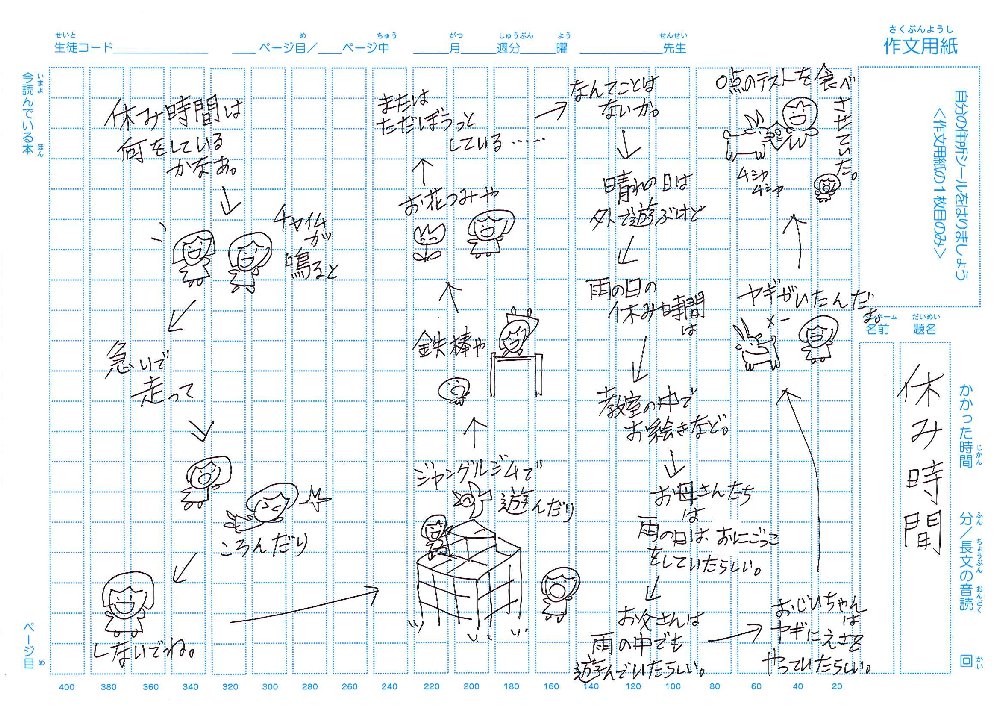 生徒コード
ページ目/ ページ中
月 週分 曜 先生
せいと
ちゅう
がつ
しゅうぶん
よう
せんせい
さくぶんようし
作文用紙
自分の住所シールをはりましょう
<作文用紙の1枚目のみ>
名前
題名
だいめい
休み時間
かかった時間
じかん
分/長文の音読
ふん
ちょうぶん
おんどく
回
かい
今読んでいる本
いまよ
ほん
ページ目
め
休み時間は
何をしている
かなあ。
チャイム
が
鳴ると
急いで
走って
ころんだり
しないでね。
ジャングルジムで
遊んだり
鉄棒や
お花つみや
または
ただぼうっと
している……
なんてことは
ないか。
晴れの日は
外で遊ぶけど
雨の日の
休み時間
は
教室の中で
お絵きなど。
お母さんたち
は
雨の日は、おにごっこ
をしていたらしい。
お父さんは
雨の中でも
遊んでいたらしい。
おじいちゃん
は
ヤギにえさを
やっていたらしい。
ヤギがいたんだ
よ。
メー
0点のテストを食べ
させていた。
ムシャ
ムシャ
400 380 360 340 320 300 280 260 240 220 200 180 160 140 120 100 80 60 40 20